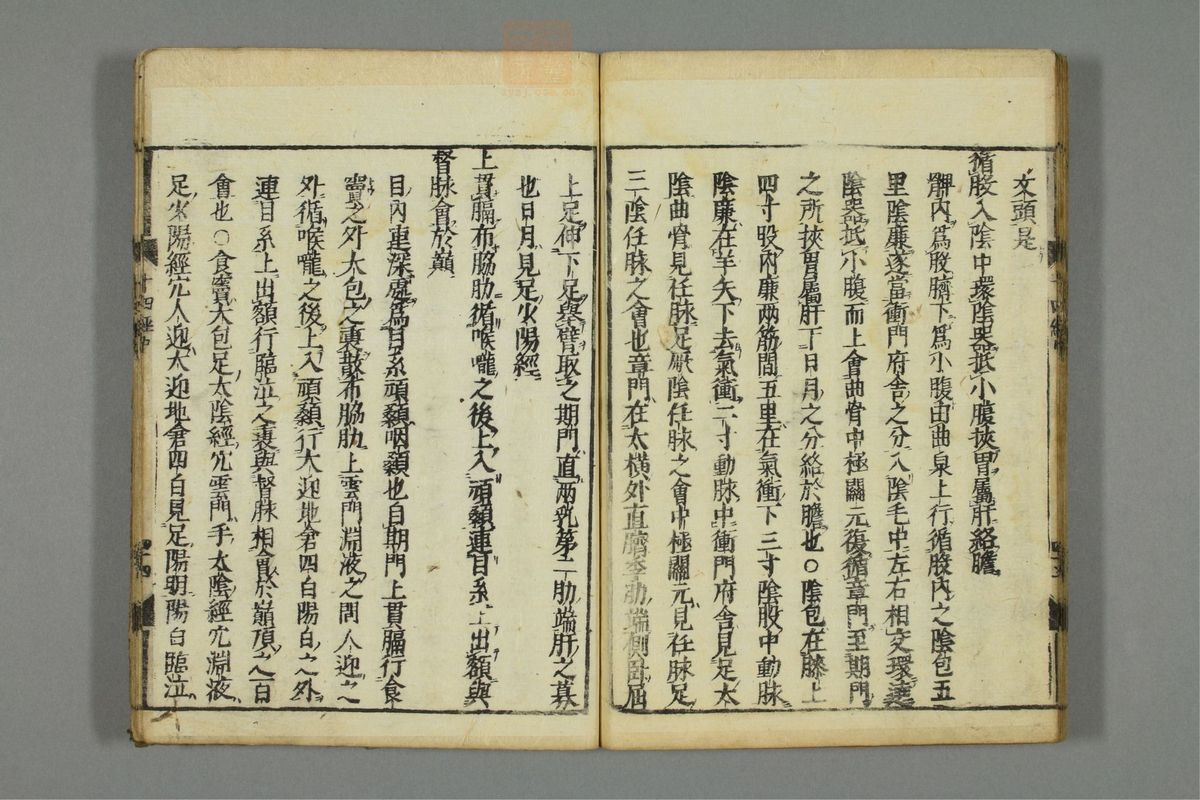 文頭是
循股入陰中環陰器抵小腹挾胃屬肝絡膽
髀内爲股臍下爲小腹由曲泉上行循股内之陰包五
里陰廉遂當衝門府舍之分入陰毛中左右相交環遶
陰器抵小腹而上會曲骨中極關元復循章門至期門
之所挾胃屬肝下日月之分絡於膽也○陰包在膝上
四寸股内廉兩筋間五里在氣衝下三寸陰股中動脉
陰廉在羊矢下去氣衝二寸動脉中衝門府舍見足太
陰曲骨見任脉足厥陰任脉之會中極關元見任脉足
三陰任脉之會也章門在太横外直臍季肋端側卧屈
上足伸下足擧臂取之期門直兩乳第二肋端肝之募
也日月見足少陽經
上貫膈布脇肋循喉嚨之後上入頏顙連目系上出額與
督脉會於巓
目内連深處爲目系頏顙咽顙也自期門上貫膈行食
竇之外大包之裏散布脇肋上雲門淵液之間人迎之
外循喉嚨之後上入頏顙行大迎地倉四白陽白之外
連目系上出額行臨泣之裏與督脉相會於巓頂之百
會也○食竇大包足太陰經穴雲門手太陰經穴淵液
足少陽經穴人迎大迎地倉四白見足陽明陽白臨泣
十四經中
十四